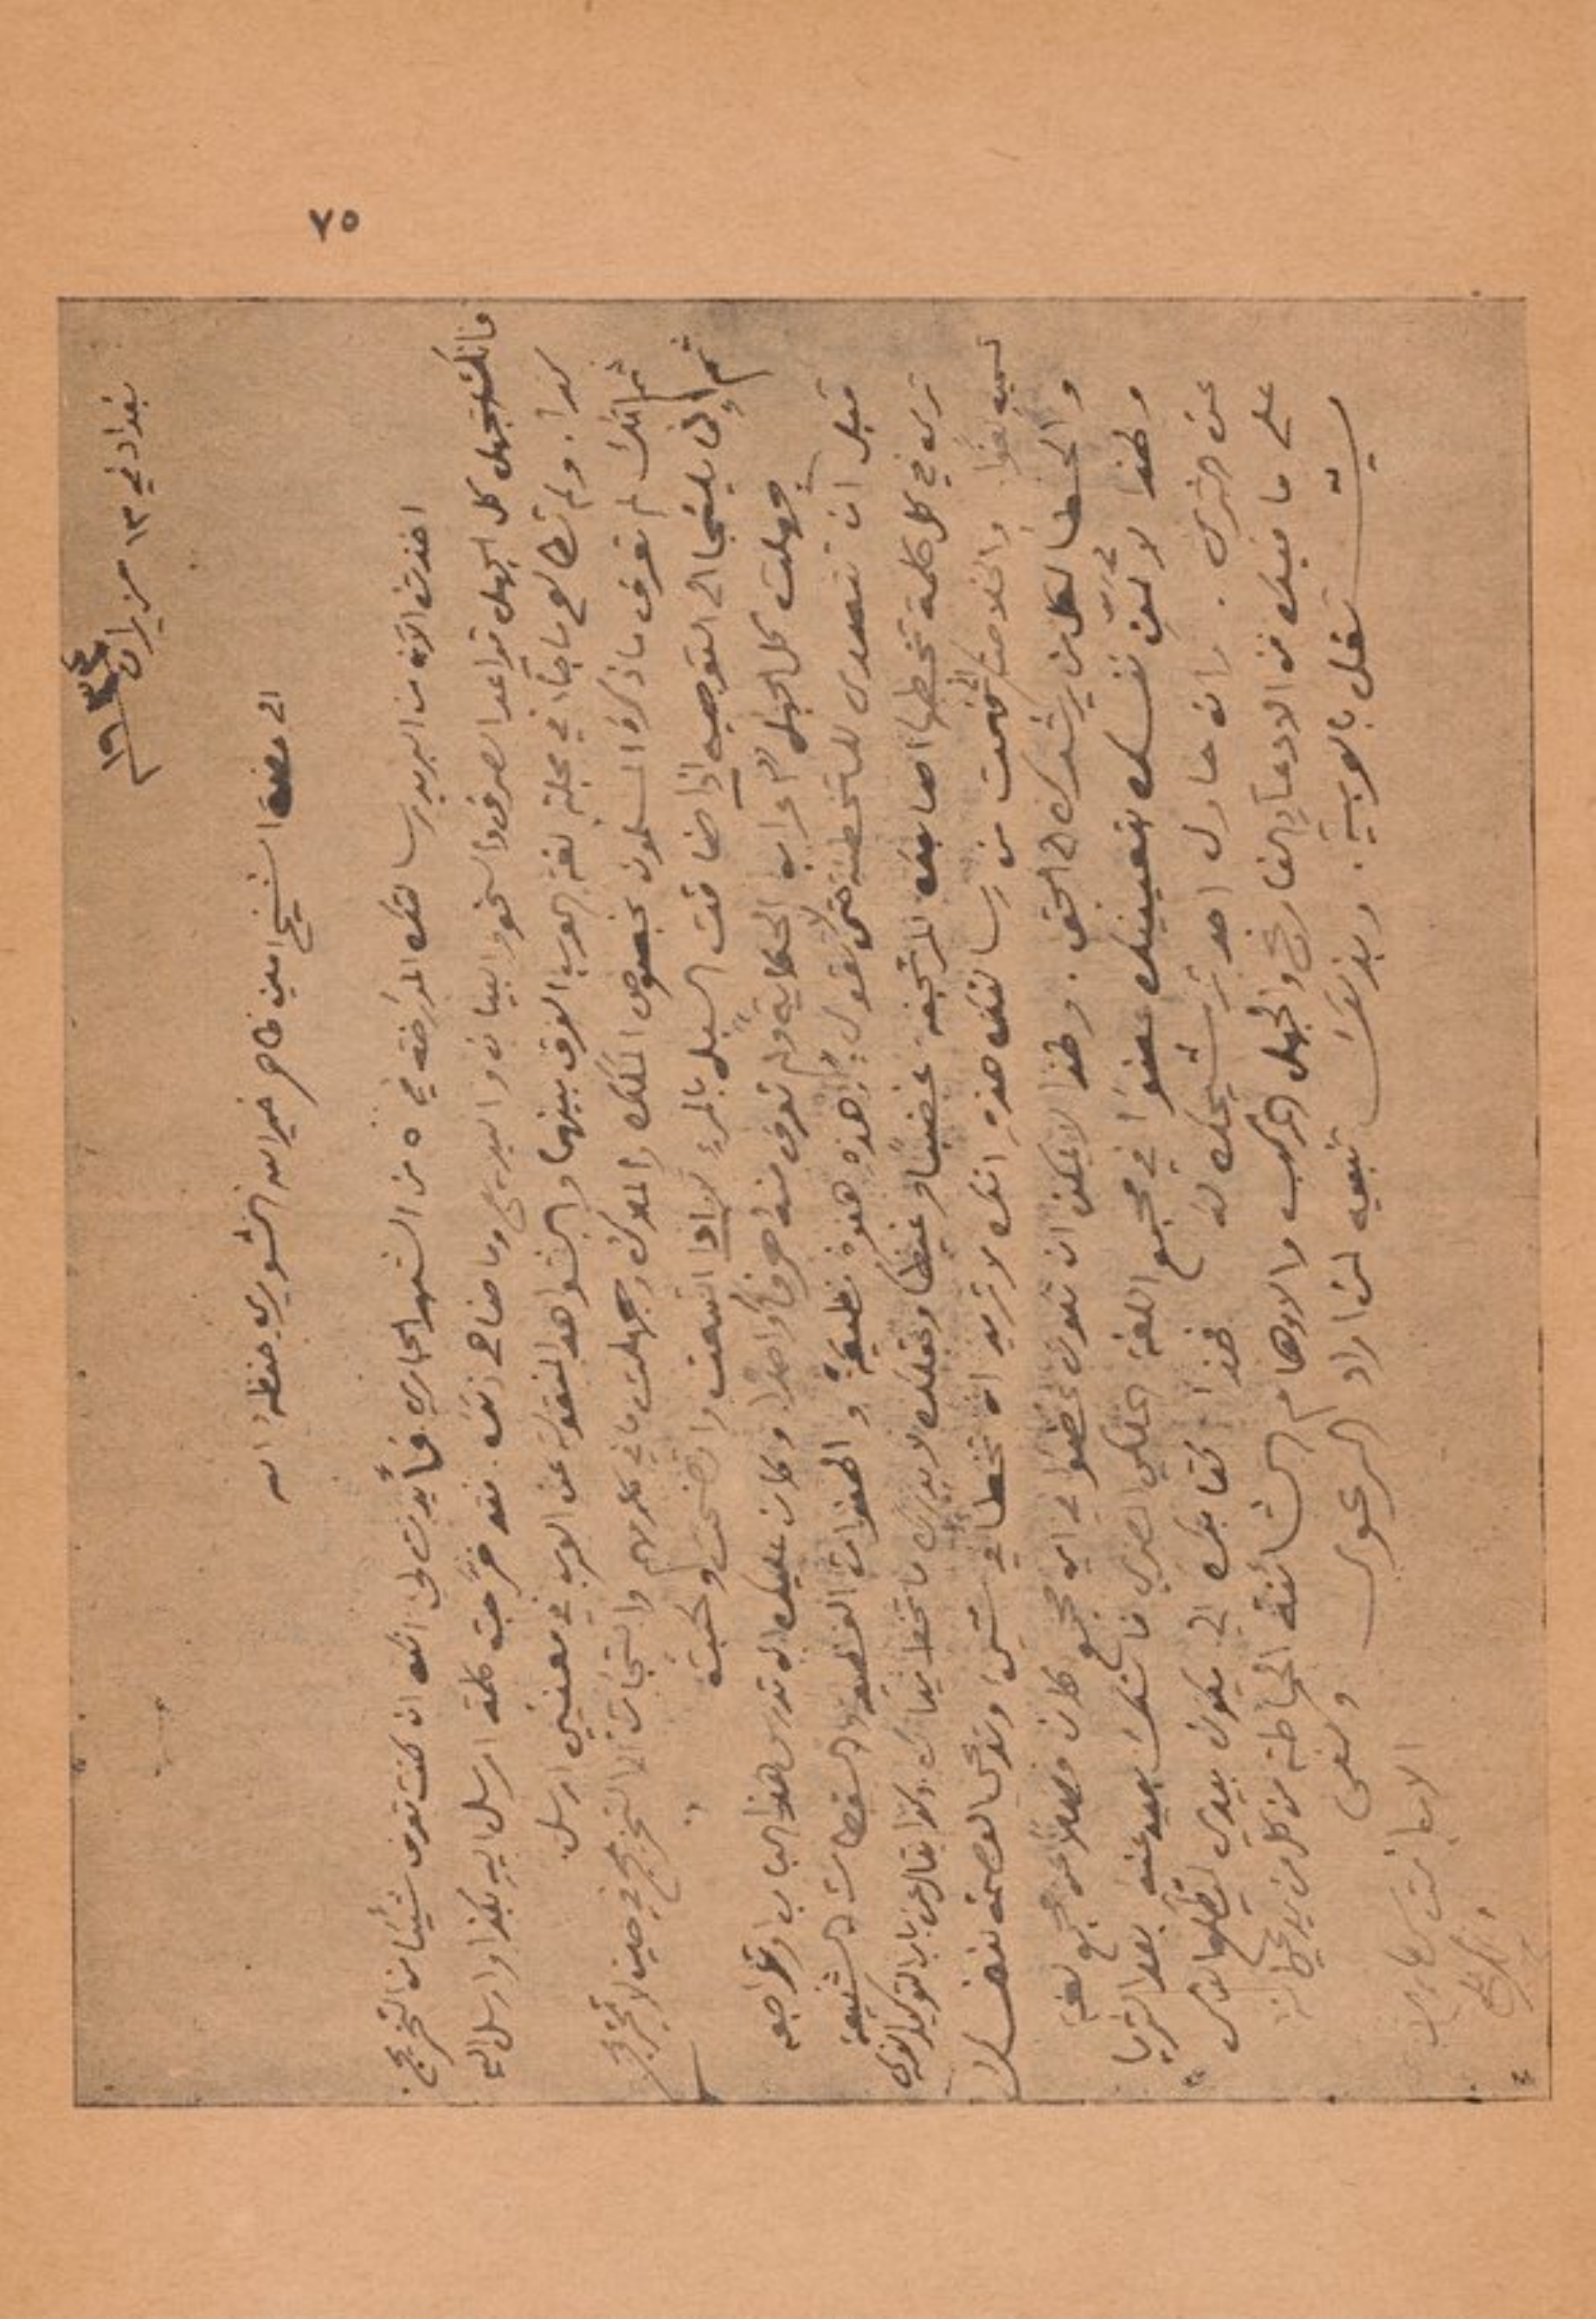 ٧٥
بغداد في ١٣ حزيران
١٩٣٤
الى حضرة الشيخ امين ظاهر خير الله الشويري حفظه الله
اخذت الآن من البريد رسالتك المؤرخة في ٥ من الشهر الجاري فأيدت لي انك ان كنت تعرف شيئًا من التخريج
فانك تجهل كل الجهل قواعد الصرف والنحو والبيان والبديع وما ضاهى ذلك. فقد خرّجت كلمة ارسل اليه بكذا وارسل اليه
كذا. ولم تطالع ما جاء في مجلة لغة العرب الفرق بينهما والشواهد المنقولة عن العرب في معنيي ارسل
ثم انك لم تعرف ما ذكره المسلمون بخصوص الملك والملوك وجهلت ما في كلامهم والتجأت الى التخريج في حين لا تخريج
ثم إلى يلتجأ الى التوجيه إذا ضاقت السبل بالمرء لا إذا اتسعت واتضحت
جهلت كل الجهل "إعراب الحكاية" ولم تعرف منه حرفًا واحدًا وكان عليك ان تدرس هذا الباب وتراجعه
قبل ان تتصدى للتخطئة حتى لا تقول: إن هذه هفوة فظيعة و الهفوات الفظيعة والسقطات الشنيعة
ترى في كل كلمة تخطها اصابعك المرتجفة غضبًا وغيظًا وعقلك لا يدري ما تخط يداك. وكذا يقال عن باب التوكيد الذي
تسميه لغوًا. والخلاصة اني فهمت من رسالتك هذه انك لا تريد ان تخطأ في شيء وتدعي العصمة لنفسك
والخطأ لكل من يرشدك الى الحق. ولهذا لا يمكن ان تكون عضوًا في اي مجمع كان فضلاً عن مجمع لغة
ولهذا لا تمنّ نفسك بتعيينك عضوًا في مجمع اللغة الملكي المصري فانك بعيد عنه بعد الثريا
عن الثرى. وان حاول احد ترشيحك له فهذا كتابك الي يكون بيدي ليطلع الناس
على ما فيك من الادعاء الفارغ والجهل المركب والاوهام الشائنة المحاطة من كل من يدعي انه
يشتغل بالعربية. وبذلك تنبيه لمن اراد الرعوى وكفى
الاب انستاس ماري
الكرملي